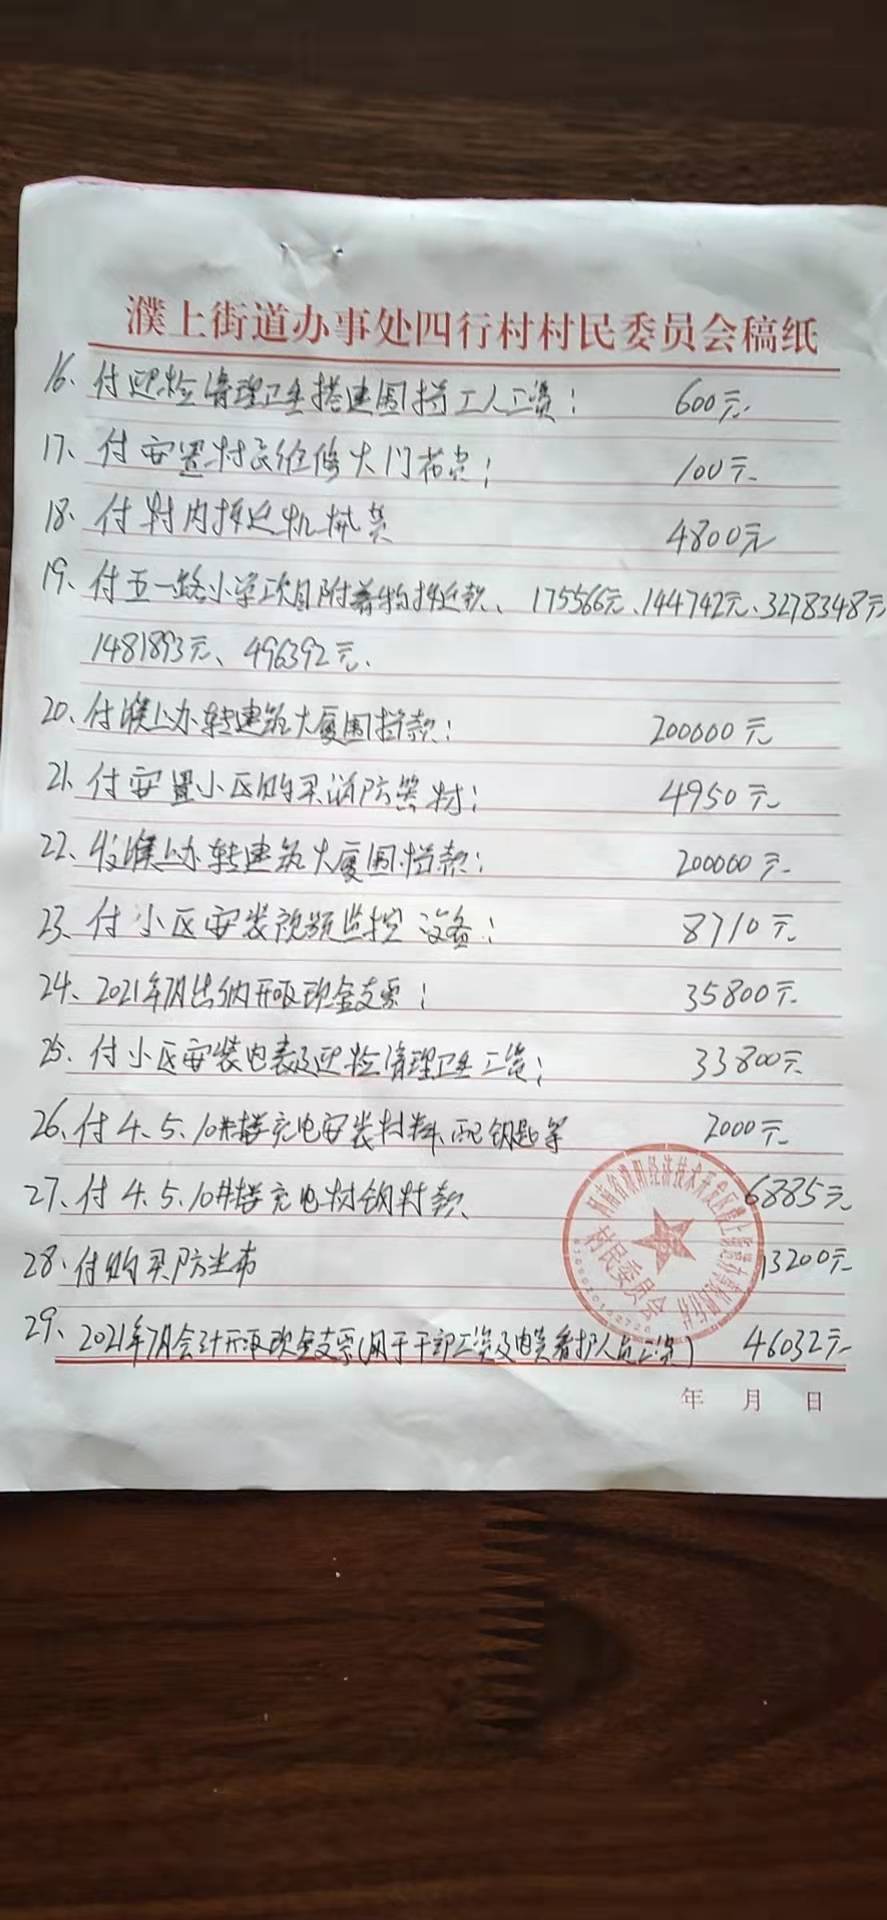 濮上街道办事处四行村村民委员会稿纸
16、付迎检清理卫生搭建围挡工人工资： 600元
17、付安置村民维修大门花费： 100元
18、付村内拆迁机械费 4800元
19、付五一路小学项目附着物拆迁款、175566元、144742元、3278348元
1481893元、496392元、
20、付濮上办转建筑大厦围挡款： 200000元
21、付安置小区购买消防器材： 4950元
22、收濮上办转建筑大厦围挡款： 200000元
23、付小区安装视频监控设备： 8710元
24、2021年7月出纳开取现金支票： 35800元
25、付小区安装电表及迎检清理卫生工资： 33800元
26、付4、5、10#楼充电安装材料、配钥匙等 2000元
27、付4、5、10#楼充电材钢材款 6885元
28、付购买防尘布 13200元
29、2021年7月会计开取现金支票(用于干部工资及电费看护人员工资) 46032元
村民委员会
年 月 日